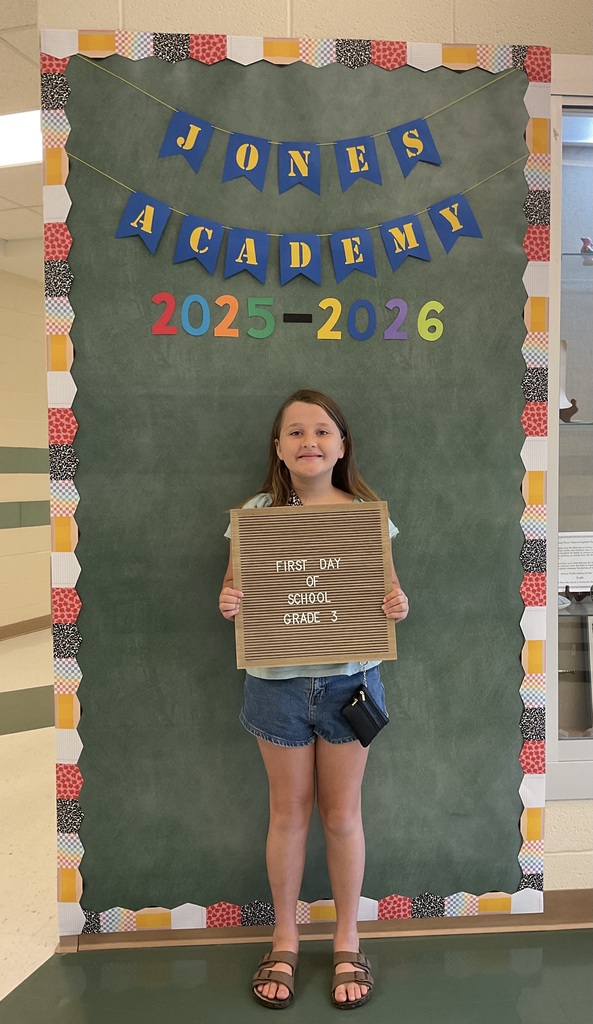 JONES
ACADEMY
2025-2026
FIRST DAY
OF
SCHOOL
GRADE 3